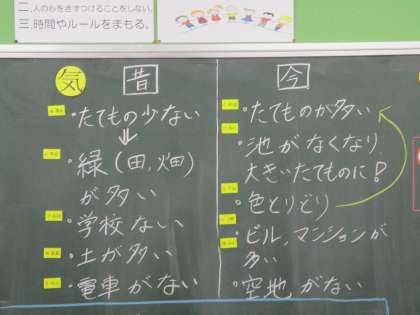 二.人の心をきずつけることをしない。
三.時間やルールをまもる。
気
昔
・たてもの少ない
⇓
・緑(田,畑)
が多い
・学校ない
・土が多い
・電車がない
今
・たてものが多い
・池がなくなり
大きいたてものに!
・色とりどり
・ビル,マンションが
多い
・空地がない